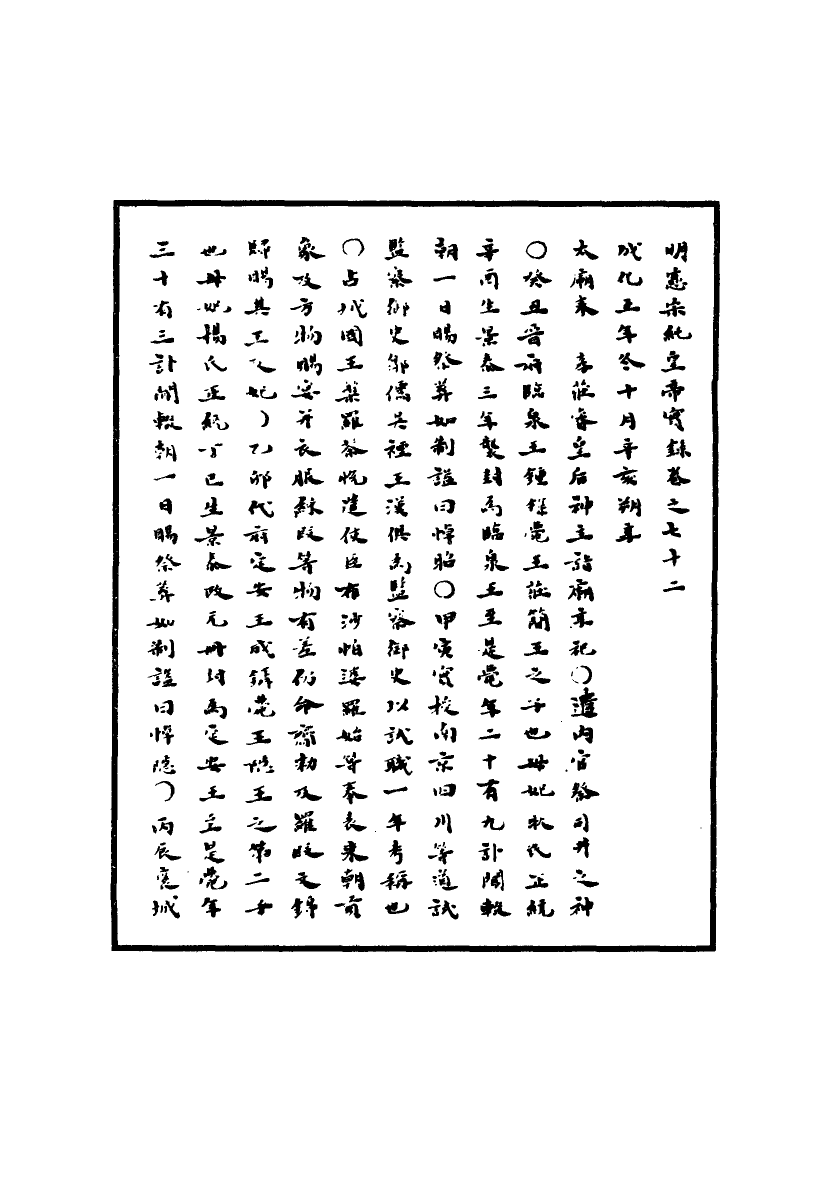 明憲宗純皇帝實錄卷之七十二
成化五年冬十月辛亥朔享
太廟奉 孝莊睿皇后神主詣廟末祀○遣內官祭司井之神
○癸丑晉府臨泉王鍾鏷薨王莊簡王之子也母妃狄氏正統
辛酉生景泰三年襲封為臨泉王至是薨年二十有九訃聞輟
朝一日賜祭葬如制諡曰悼昭○甲寅實授南京四川等道試
監察御史鄒儒吳禋王漢俱為監察御史以試職一年考稱也
○占城國王槃羅茶悅遣使臣布沙帕婆羅始等奉表來朝貢
象及方物賜宴并衣服綵段等物有差仍命齎勑及羅段文錦
歸賜其王及妃○乙卯代府定安王成鐸薨王隱王之第二子
也母妃楊氏正統丁巳生景泰改元冊封為定安王至是薨年
三十有三訃聞輟朝一日賜祭葬如制諡曰悼隱○丙辰寬城